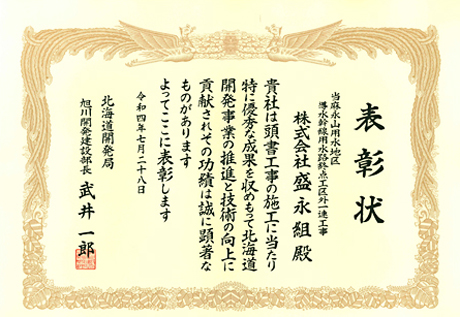 表彰状
当麻永山用水地区
導水幹線用水路終点工区外一連工事
株式会社盛永組殿
貴社は頭書工事の施工に当たり
特に優秀な成果を収めもって北海道
開発事業の推進と技術の向上に
貢献されその功績は誠に顕著な
ものがあります
よってここに表彰します
令和四年七月二十八日
北海道開発局
旭川開発建設部長 武井一郎